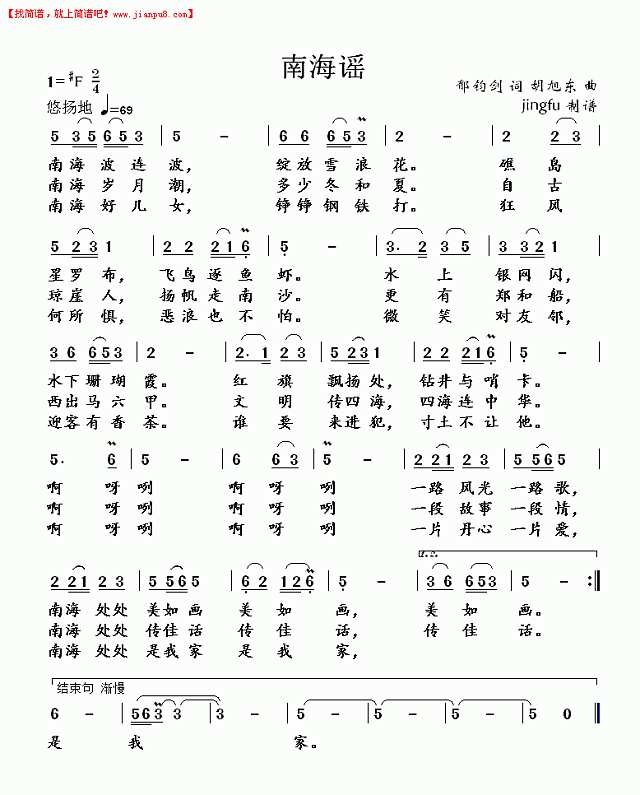 【找简谱，就上简谱吧！www.jianpu8.com】
南海谣
1=#F 2/4
郁钧剑 词 胡旭东 曲
悠扬地 ♩=69
jingfu 制谱
5 35 653 | 5 - | 6 6 653 | 2 - | 2 23 |
南海波连波， 绽放雪浪花。 礁岛
南海岁月潮， 多少冬和夏。 自古
南海好儿女， 铮铮钢铁打。 狂风
5 231 | 22 216 | 5 - | 3. 2 35 | 3 321 |
星罗布， 飞鸟逐鱼虾。 水上 银网闪，
琼崖人， 扬帆走南沙。 更有 郑和船，
何所惧， 恶浪也不怕。 微笑 对友邻，
36 653 | 2 - | 2. 1 23 | 5 231 | 22 216 | 5 - |
水下珊瑚霞。 红旗 飘扬处， 钻井与哨卡。
西出马六甲。 文明 传四海， 四海连中华。
迎客有香茶。 谁要 来进犯， 寸土不让他。
5. 6 | 5 - | 6 63 | 5 - | 2 221 | 5 565 |
啊 呀咧 啊 呀咧 一路风光一路歌，
啊 呀咧 啊 呀咧 一段故事一段情，
啊 呀咧 啊 呀咧 一片丹心一片爱，
1.2.
221 23 | 5 565 | 62 126 | 5 - | 36 653 | 5 - :||
南海处处 美如画 美如 画， 美如 画。
南海处处 传佳话 传佳 话， 传佳 话。
南海处处 是我家 是我 家，
结束句 渐慢
6 - | 563 3 | 3 - | 5 - | 5 - | 5 - | 5 0 ||
是 我 家。